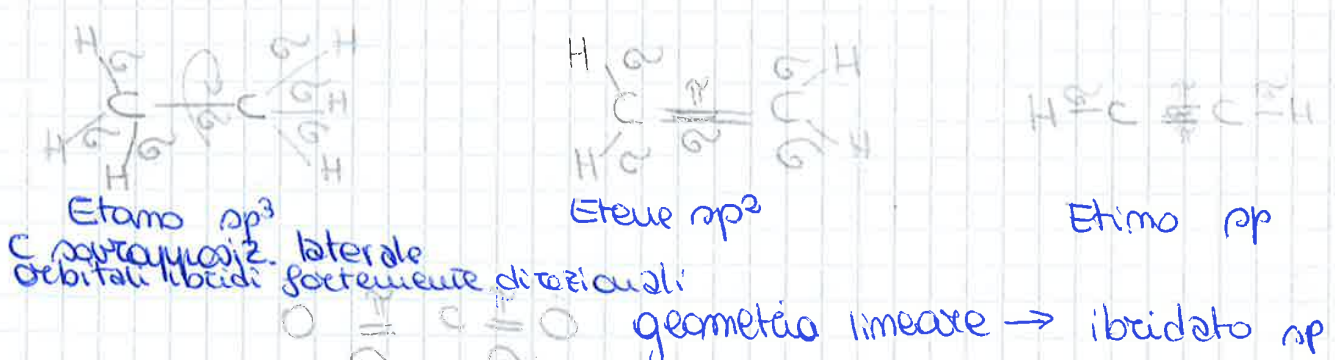 H σ σ H H σ π σ H
C σ C σ H C σ C H σ C π π C σ H
H σ σ H H H σ σ H
Etano sp³ Etene sp² Etino sp
C sovrapposiz. laterale
orbitali ibridi fortemente direzionali
O π C π O geometria lineare → ibridato sp